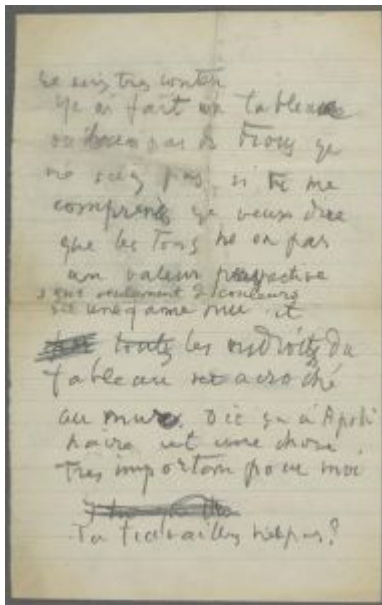 ge suis tres conten
ge ai fait un tableau
ou pas de trous ge
ne seg pas, si tu me
comprens ge veux dire
que les tons ne on pas
un valeur
s que seulement de couleurs
une game et
toute les endroits du
tableau acroché
au mure. Dic ça a Apoli
naire et une chose
tres important pour moi
Tu travailles